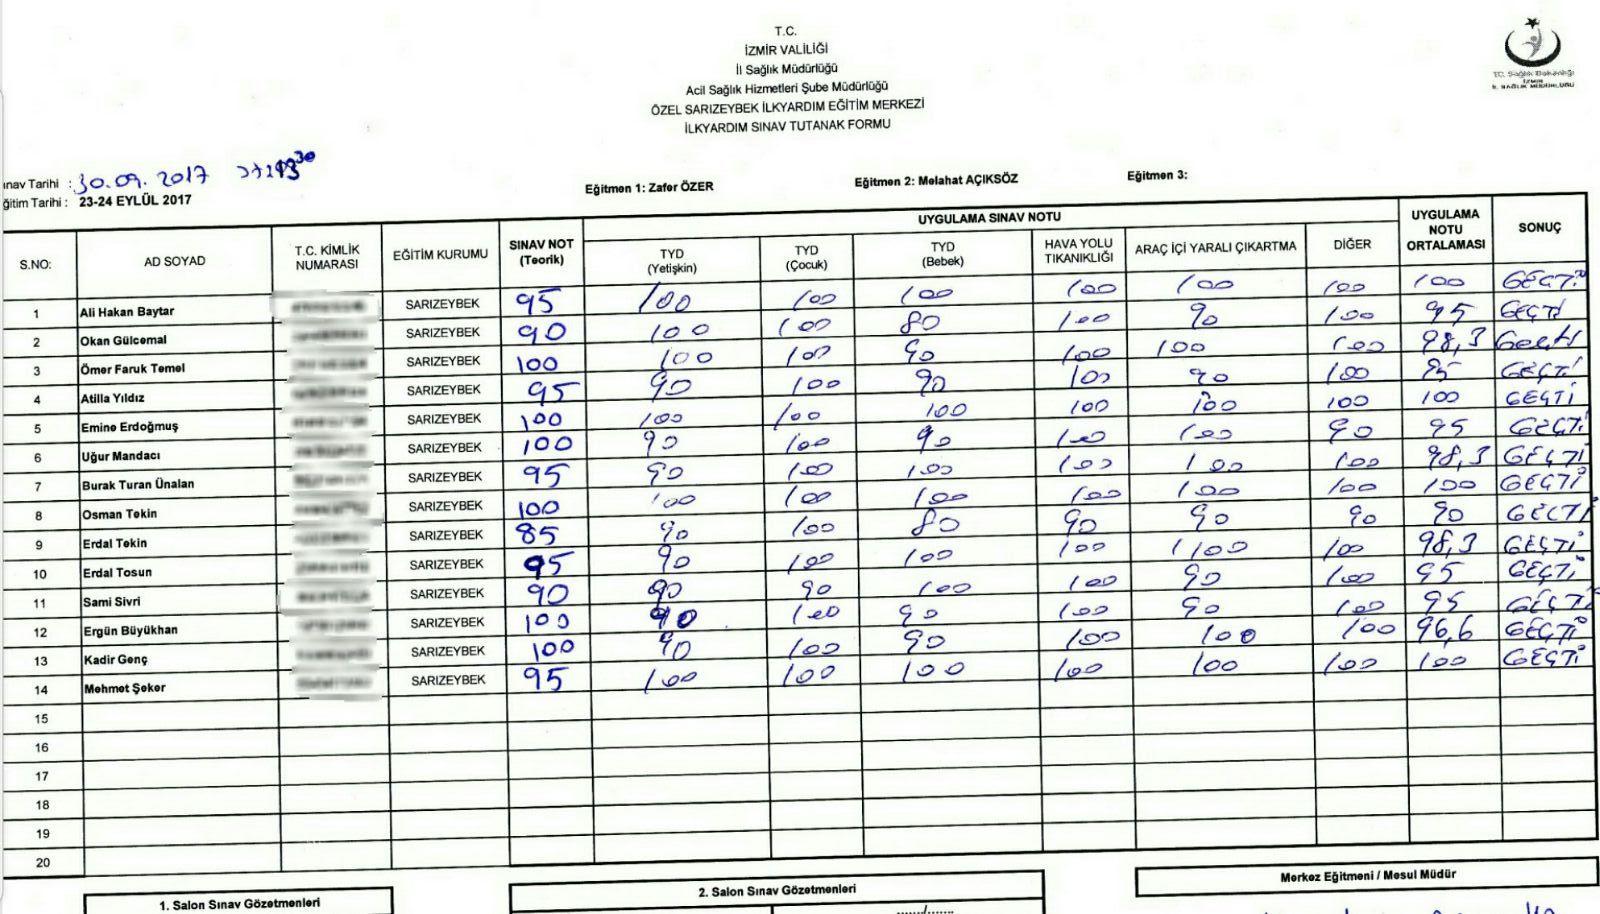 T.C.
İZMİR VALİLİĞİ
İl Sağlık Müdürlüğü
Acil Sağlık Hizmetleri Şube Müdürlüğü
ÖZEL SARIZEYBEK İLKYARDIM EĞİTİM MERKEZİ
İLKYARDIM SINAV TUTANAK FORMU
T.C. Sağlık Bakanlığı
İZMİR
İL SAĞLIK MÜDÜRLÜĞÜ
ınav Tarihi : 30.09.2017
ğitim Tarihi : 23-24 EYLÜL 2017
Eğitmen 1: Zafer ÖZER Eğitmen 2: Melahat AÇIKSÖZ Eğitmen 3:
S.NO: AD SOYAD T.C. KİMLİK NUMARASI EĞİTİM KURUMU SINAV NOT (Teorik) UYGULAMA SINAV NOTU UYGULAMA NOTU ORTALAMASI SONUÇ
TYD (Yetişkin) TYD (Çocuk) TYD (Bebek) HAVA YOLU TIKANIKLIĞI ARAÇ İÇİ YARALI ÇIKARTMA DİĞER
1 Ali Hakan Baytar SARIZEYBEK 95 100 100 100 100 100 100 100 GEÇTİ
2 Okan Gülcemal SARIZEYBEK 90 100 100 80 100 90 100 95 GEÇTİ
3 Ömer Faruk Temel SARIZEYBEK 100 100 100 90 100 100 100 98,3 Geçti
4 Atilla Yıldız SARIZEYBEK 95 90 100 90 100 90 100 95 GEÇTİ
5 Emine Erdoğmuş SARIZEYBEK 100 100 100 100 100 100 100 100 GEÇTİ
6 Uğur Mandacı SARIZEYBEK 100 90 100 90 100 100 90 95 GEÇTİ
7 Burak Turan Ünalan SARIZEYBEK 95 90 100 100 100 100 100 98,3 GEÇTİ
8 Osman Tekin SARIZEYBEK 100 100 100 100 100 100 100 100 GEÇTİ
9 Erdal Tekin SARIZEYBEK 85 90 100 80 90 90 90 90 GEÇTİ
10 Erdal Tosun SARIZEYBEK 95 90 100 100 100 100 100 98,3 GEÇTİ
11 Sami Sivri SARIZEYBEK 90 90 90 100 100 90 100 95 GEÇTİ
12 Ergün Büyükhan SARIZEYBEK 100 90 100 90 100 90 100 95 GEÇTİ
13 Kadir Genç SARIZEYBEK 100 90 100 90 100 100 100 96,6 GEÇTİ
14 Mehmet Şeker SARIZEYBEK 95 100 100 100 100 100 100 100 GEÇTİ
15
16
17
18
19
20
1. Salon Sınav Gözetmenleri 2. Salon Sınav Gözetmenleri Merkez Eğitmeni / Mesul Müdür